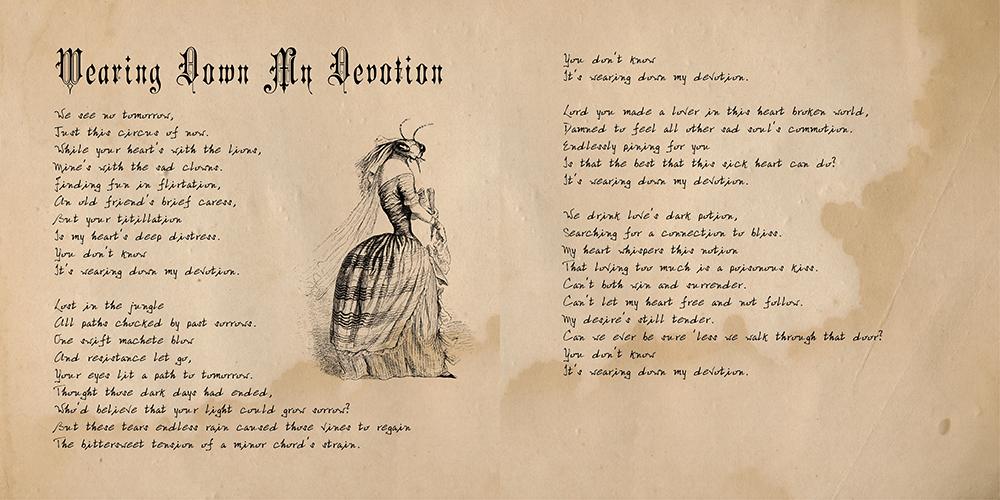 Wearing Down My Devotion
We see no tomorrow,
Just this circus of now.
While your heart's with the lions,
Mine's with the sad clowns.
Finding fun in flirtation,
An old friend's brief caress,
But your titillation
Is my heart's deep distress.
You don't know
It's wearing down my devotion.
Lost in the jungle
All paths chocked by past sorrows.
One swift machete blow
And resistance let go,
Your eyes lit a path to tomorrow.
Thought those dark days had ended,
Who'd believe that your light could grow sorrow?
But these tears endless rain caused those vines to regain
The bittersweet tension of a minor chord's strain.
You don't know
It's wearing down my devotion.
Lord you made a lover in this heart broken world,
Damned to feel all other sad soul's commotion.
Endlessly pining for you
Is that the best that this sick heart can do?
It's wearing down my devotion.
We drink love's dark potion,
Searching for a connection to bliss.
My heart whispers this notion
That loving too much is a poisonous kiss.
Can't both win and surrender.
Can't let my heart free and not follow.
My desire's still tender.
Can we ever be sure 'less we walk through that door?
You don't know
It's wearing down my devotion.